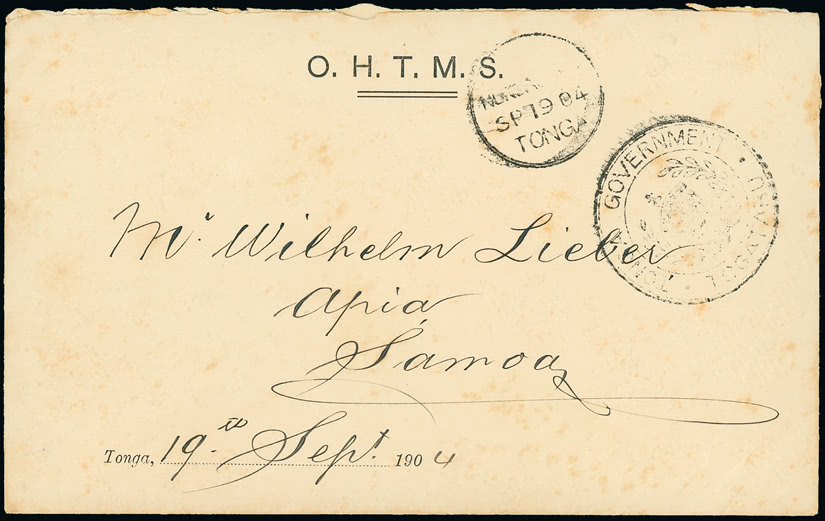 O. H. T. M. S.
SP 19 04
TONGA
GOVERNMENT
TONGA
Mr. Wilhelm Lieber
Apia
Samoa
Tonga, 19th Sept. 1904